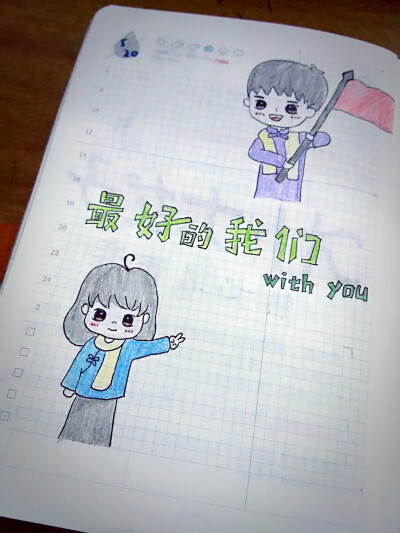 5
20
8
10
12
14
16
18
20
22
24
2
最好的我们
with you